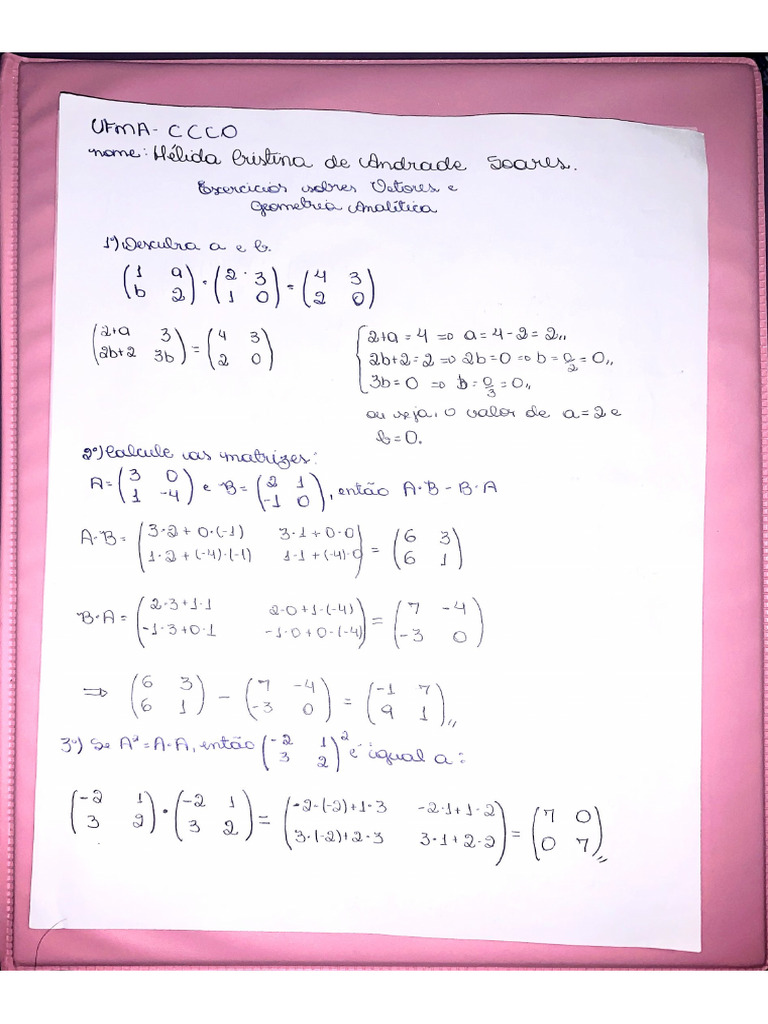 UFMA - CCCO
nome: Hélida Cristina de Andrade Soares.
Exercicios sobres Vetores e
Geometria Analítica
1º) Descubra a e b.
(1 a / b 2) · (2 3 / 1 0) = (4 3 / 2 0)
(2+a 3 / 2b+2 3b) = (4 3 / 2 0)
{2+a = 4 => a = 4-2 = 2,,
2b+2 = 2 => 2b = 0 => b = 0/2 = 0,,
3b = 0 => b = 0/3 = 0,,
ou seja, o valor de a = 2 e
b = 0.
2º) Calcule as matrizes:
A = (3 0 / 1 -4) e B = (2 1 / -1 0), então A·B - B·A
A·B = (3·2 + 0·(-1) 3·1 + 0·0 / 1·2 + (-4)·(-1) 1·1 + (-4)·0) = (6 3 / 6 1)
B·A = (2·3+1·1 2·0+1·(-4) / -1·3+0·1 -1·0+0·(-4)) = (7 -4 / -3 0)
=> (6 3 / 6 1) - (7 -4 / -3 0) = (-1 7 / 9 1),,
3º) Se A² = A·A, então (-2 1 / 3 2)² é igual a:
(-2 1 / 3 2) · (-2 1 / 3 2) = (-2·(-2)+1·3 -2·1+1·2 / 3·(-2)+2·3 3·1+2·2) = (7 0 / 0 7),,